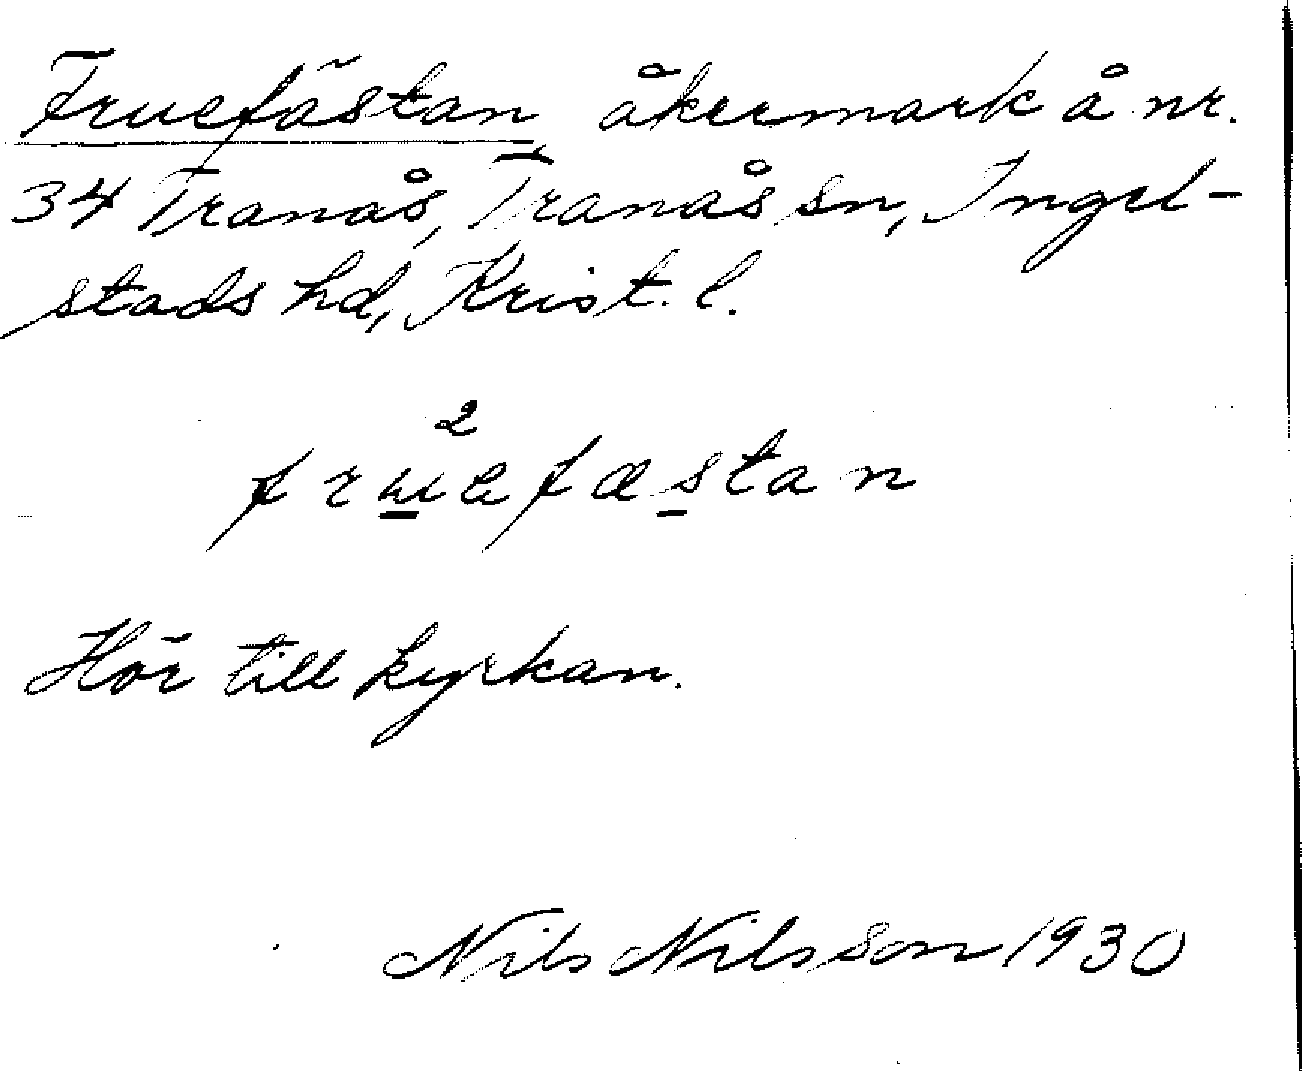 Fruefästan, åkermark å nr.
34 Tranås, Tranås sn, Ingel-
stads hd, Krist. l.
2
fruefæstan
Hör till kyrkan.
Nils Nilsson 1930